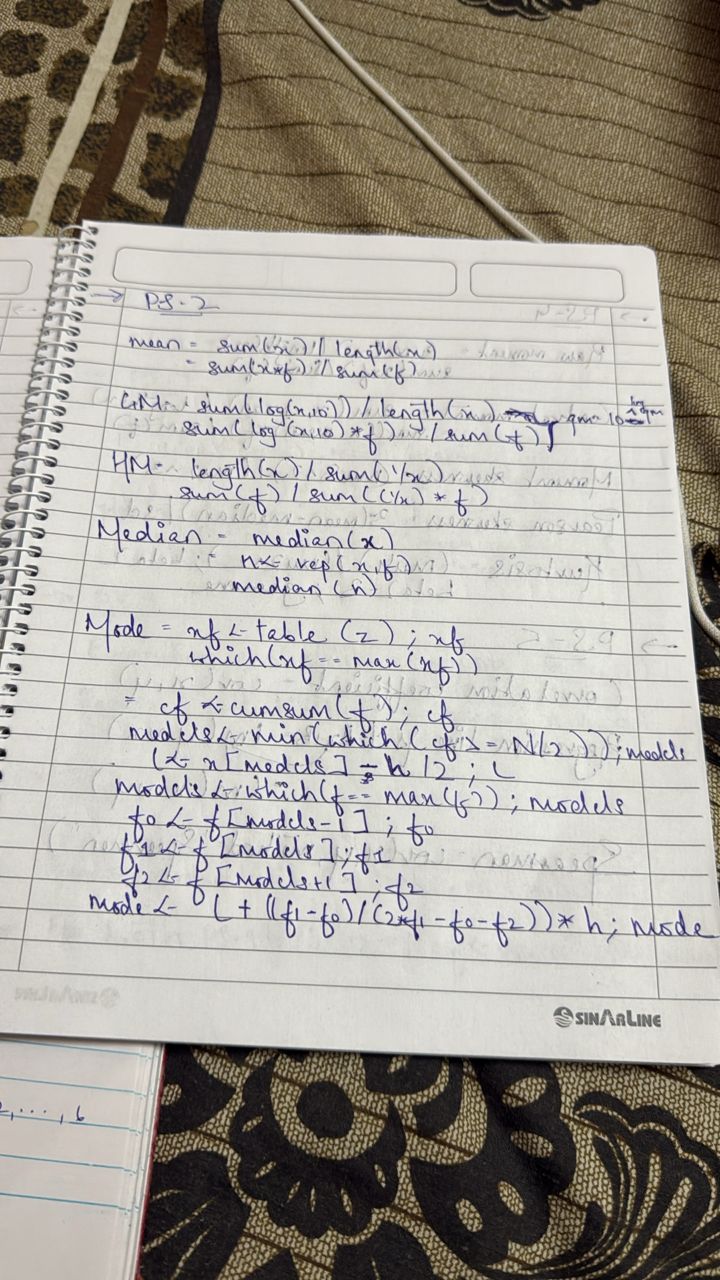 → P.S-2
mean = sum(x) / length(x)
= sum(x*f) / sum(f)
GM = sum(log(x,10)) / length(x) gm = 10^log gm
sum(log(x,10)*f) / sum(f)
HM = length(x) / sum(1/x)
sum(f) / sum((1/x) * f)
Median = median(x)
= n<- rep(x,f)
median(n)
Mode = xf <- table(z) ; xf
which(xf == max(xf))
= cf <- cumsum(f) ; cf
models <- min(which(cf >= N/2)) ; models
l <- x[models] - h/2 ; l
models <- which(f == max(f)) ; models
f0 <- f[models-1] ; f0
f1 <- f[models] ; f1
f2 <- f[models+1] ; f2
mode <- l + ((f1-f0)/(2*f1-f0-f2))*h ; mode
SINARLINE
2,...,6